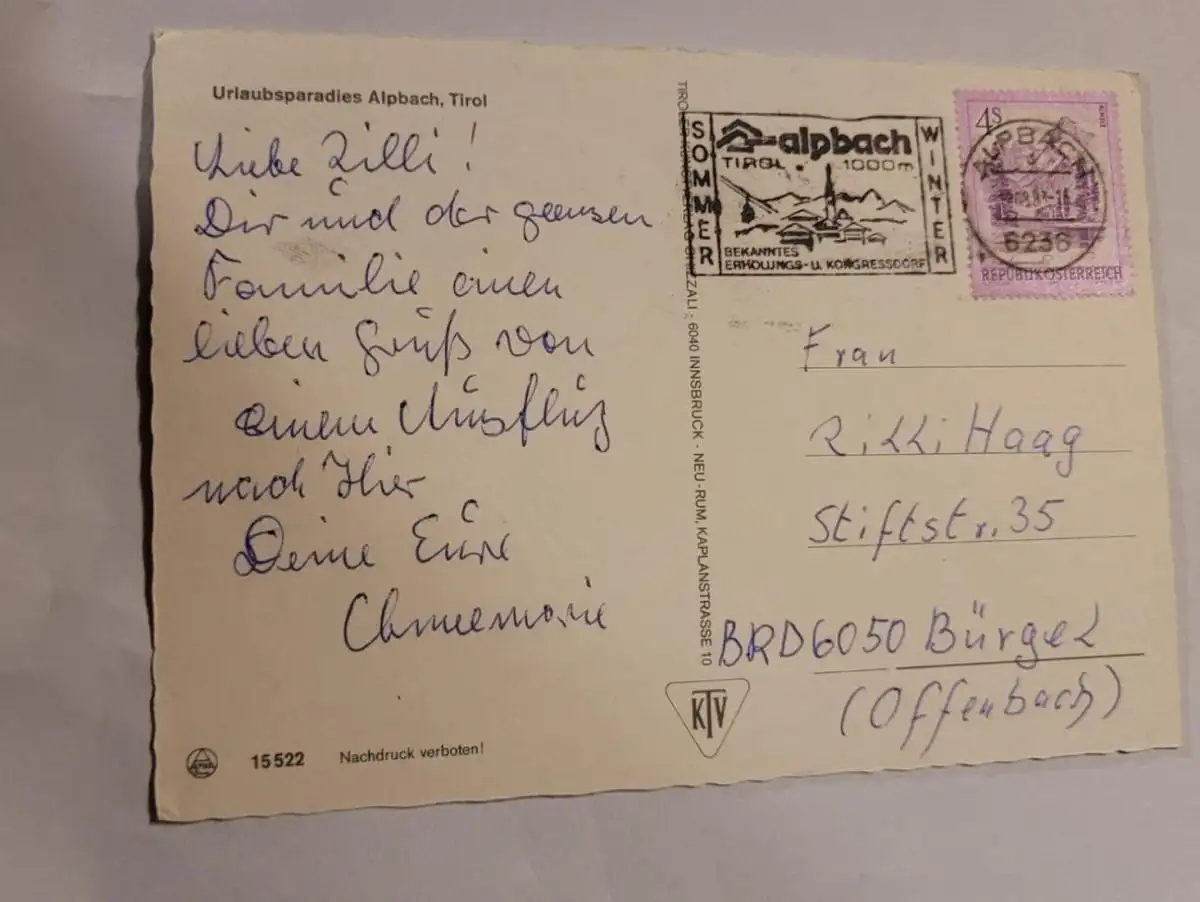 Urlaubsparadies Alpbach, Tirol
Liebe Zilli!
Dir und der ganzen
Familie einen
lieben Gruß von
einem Ausflug
nach Hier
Deine Eure
Annemarie
15522 Nachdruck verboten!
6040 INNSBRUCK - NEU-RUM, KAPLANSTRASSE 10
KTV
SOMMER
alpbach
TIROL 1000m
BEKANNTES
ERHOLUNGS- U. KONGRESSDORF
WINTER
4S
REPUBLIK ÖSTERREICH
ALPBACH
6236
Frau
Haag
Stiftstr. 35
BRD 6050 Bürgel
(Offenbach)